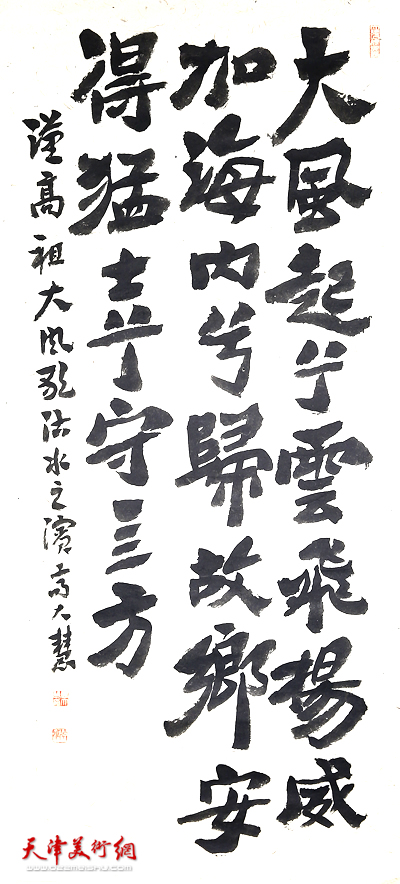 大風起兮雲飛揚威
加海内兮歸故鄉安
得猛士兮守亖方
漢高祖大風歌沽水之濱高大慧
天津美術網